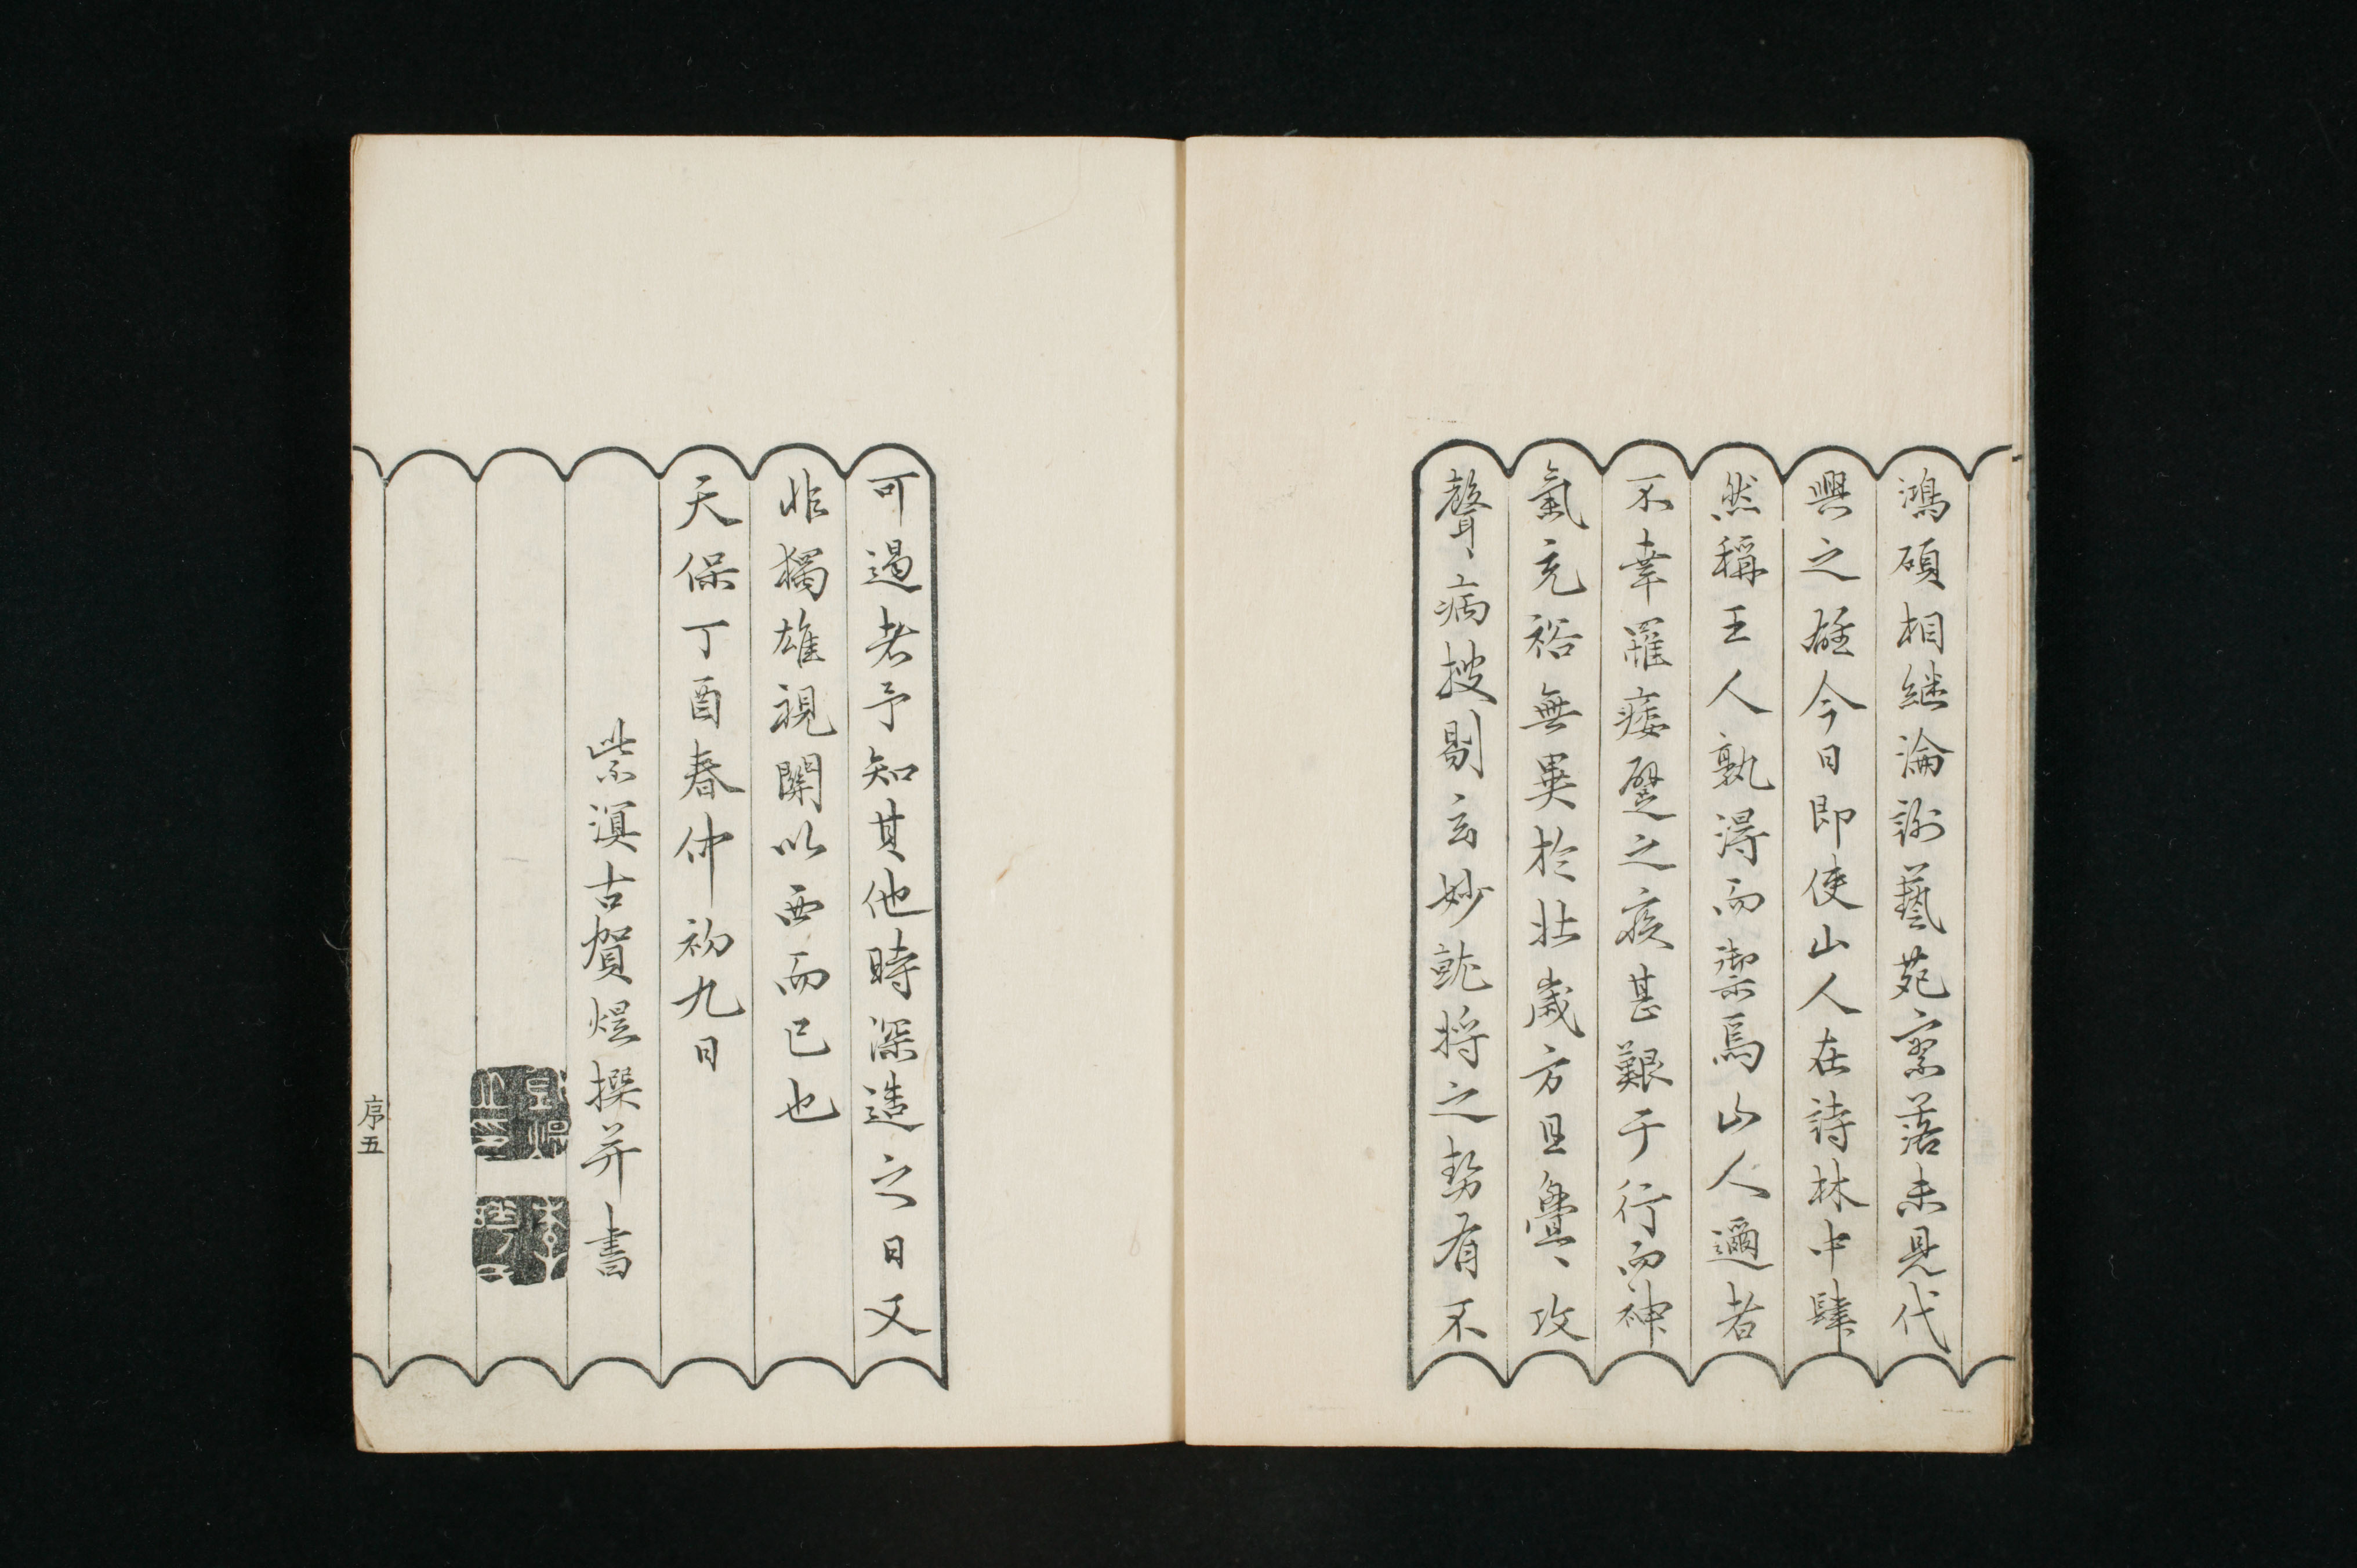 鴻碩相継淪謝藝苑寥落未見代
興之雄今日即使山人在詩林中肆
然稱王人孰得而禦焉山人邇者
不幸罹痿躄之疾甚艱于行而神
氣充裕無異於壯歲方且亹〻攻
聲〻病搜剔玄妙骎将之勢有不
可遏者予知其他時深造之日又
非獨雄視關以西而已也
天保丁酉春仲初九日
紫溟古賀煜撰并書
序五